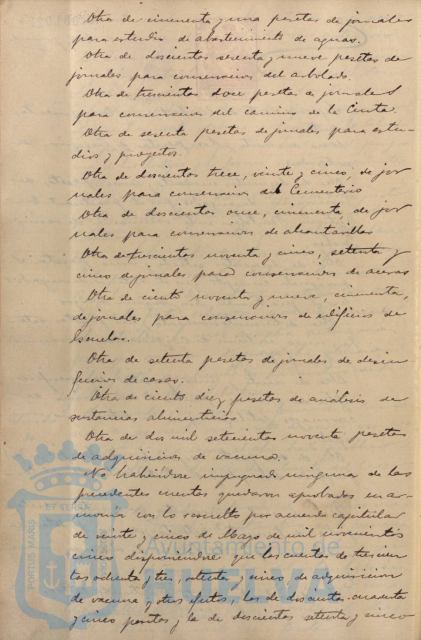 Otra de cincuenta y una pesetas de jornales
para estudios de abastecimiento de aguas.
Otra de doscientas sesenta y nueve pesetas de
jornales para conservacion del arbolado.
Otra de trescientas doce pesetas de jornales
para conservacion del camino de la Cinta.
Otra de sesenta pesetas de jornales para estu-
dios y proyectos.
Otra de doscientas trece, veinte y cinco, de jor
nales para conservacion del Cementerio
Otra de doscientas once, cincuenta, de jor
nales para conservacion de alcantarillas
Otra de trescientas noventa y cinco, setenta y
cinco de jornales para conservacion de aceras
Otra de ciento noventa y nueve, cincuenta,
de jornales para conservacion de edificios de
Escuelas.
Otra de setenta pesetas de jornales de desin-
feccion de casas.
Otra de ciento diez pesetas de análisis de
sustancias alimenticias
Otra de dos mil setecientas noventa pesetas
de adquisicion de vacuna.
No habiéndose impugnado ninguna de las
precedentes cuentas quedaron aprobadas en ar-
monía con lo resuelto por acuerdo capitular
de veinte y cinco de Mayo de mil novecientos
cinco disponiendose que las cuentas de trescien
tas ochenta y tres, ochenta y cinco, de adquisicion
de vacuna y otros efectos, las de doscientas cuarenta
y cinco pesetas y la de doscientas setenta y cinco
PORTUS MARIS ET TERRAE
Ayuntamiento de
HUELVA